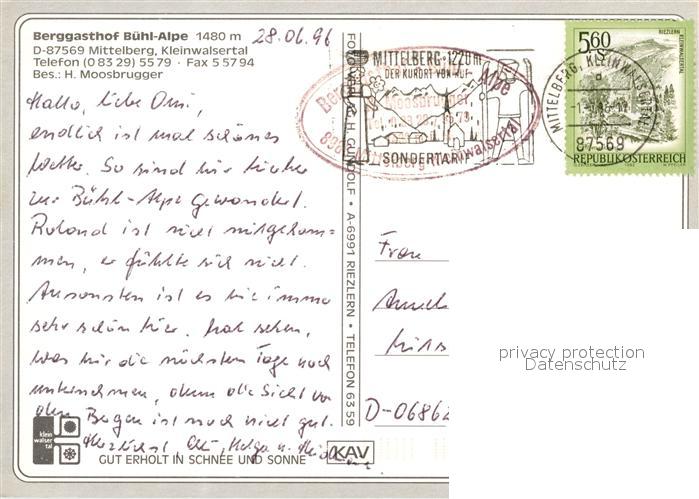 Berggasthof Bühl-Alpe 1480 m
D-87569 Mittelberg, Kleinwalsertal
Telefon (0 83 29) 55 79 · Fax 5 57 94
Bes.: H. Moosbrugger
28.06.96
Hallo, liebe Omi,
endlich ist mal schönes
Wetter. So sind wir heute
zur Bühl-Alpe gewandert.
Roland ist nicht mitgekom=
men, er fühlte sich nicht.
Ansonsten ist es wie immer
sehr schön hier. Mal sehen,
was wir die nächsten Tage noch
unternehmen, denn die Sicht von
den Bergen ist noch nicht gut.
Herzlichst, Helga u.
klein
walser
tal
GUT ERHOLT IN SCHNEE UND SONNE
KAV
H. GUNDOLF • A-6991 RIEZLERN • TELEFON 63 59
MITTELBERG · 1220 m
DER KURORT VON RUF
SONDERTARIF
Alpe
Moosbrugger
Kleinwalsertal
MITTELBERG, KLEINWALSERTAL
87569
5.60
RIEZLERN
KLEINWALSERTAL
REPUBLIK ÖSTERREICH
Frau
D-06862
privacy protection
Datenschutz